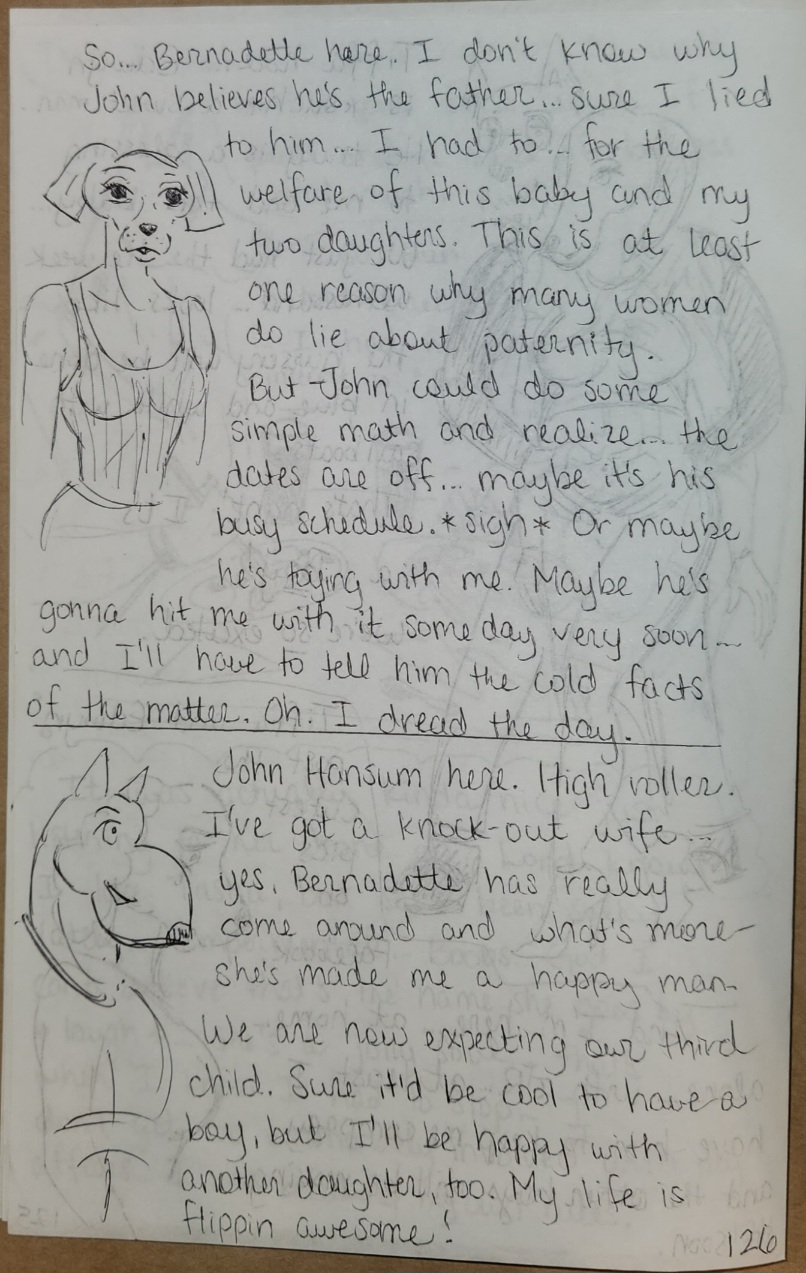 So... Bernadette here. I don't know why
John believes he's the father... sure I lied
to him... I had to... for the
welfare of this baby and my
two daughters. This is at least
one reason why many women
do lie about paternity.
But John could do some
simple math and realize... the
dates are off... maybe it's his
busy schedule. *sigh* Or maybe
he's toying with me. Maybe he's
gonna hit me with it someday very soon...
and I'll have to tell him the cold facts
of the matter. Oh. I dread the day.
John Hansum here. High roller.
I've got a knock-out wife...
yes, Bernadette has really
come around and what's more-
she's made me a happy man.
We are now expecting our third
child. Sure it'd be cool to have a
boy, but I'll be happy with
another daughter, too. My life is
flippin awesome!
126